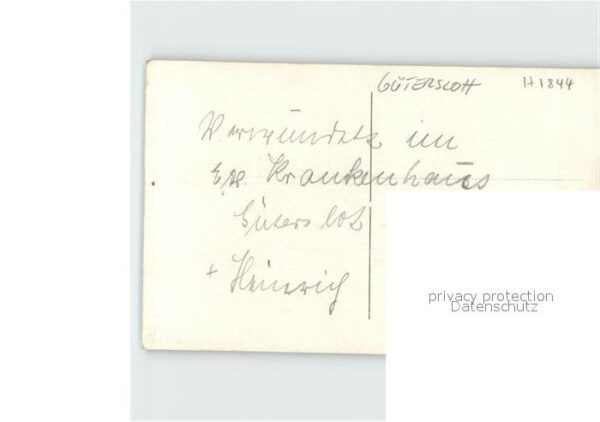 GÜTERSLOH H1844
Verwundete im
Krankenhaus
Gütersloh
+ Heinrich
privacy protection
Datenschutz